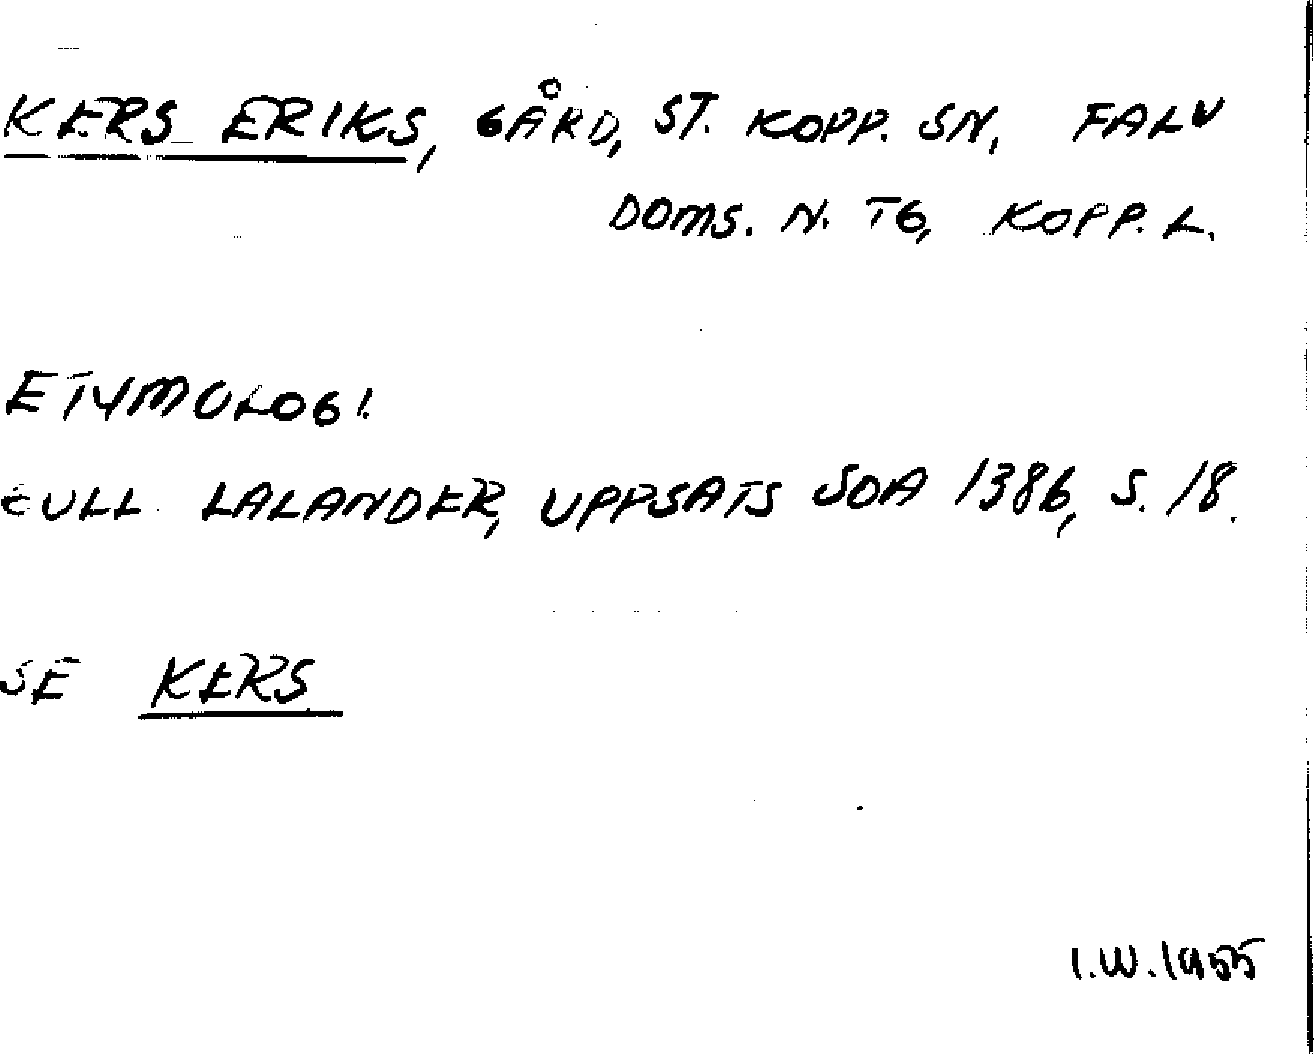 KERS ERIKS, GÅRD, ST. KOPP. SN, FALU
DOMS. N. TG, KOPP. L.
ETYMOLOGI.
GULL LALANDER, UPPSATS SOA 1386, S. 18.
SE KERS
I.W. 1955